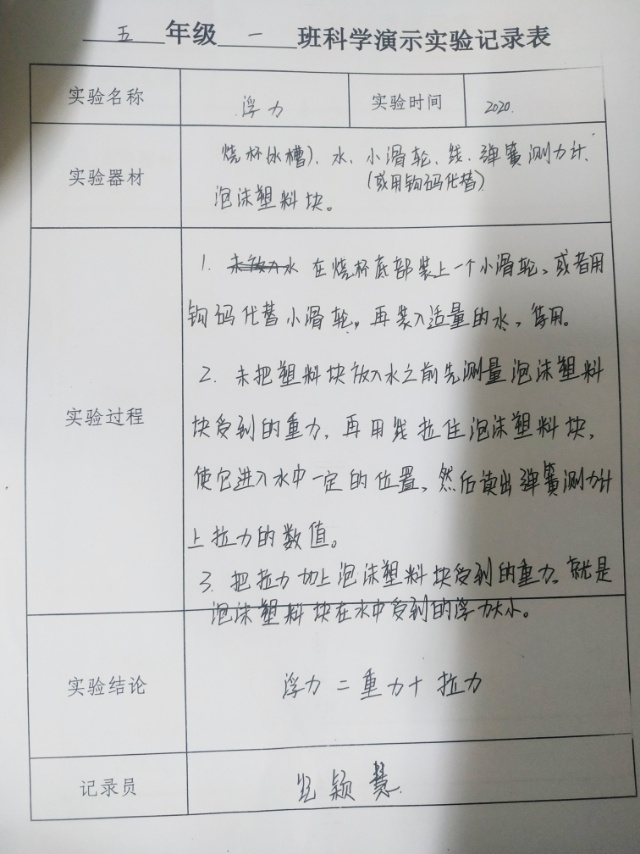 五年级一班科学演示实验记录表
实验名称 浮力 实验时间 2020.
实验器材
烧杯(水槽)、水、小滑轮、线、弹簧测力计、
(或用钩码代替)
泡沫塑料块。
实验过程
1. 未放入水 在烧杯底部装上一个小滑轮、或者用
钩码代替小滑轮,再装入适量的水,备用。
2. 未把塑料块放入水之前先测量泡沫塑料
块受到的重力,再用线拉住泡沫塑料块,
使它进入水中一定的位置、然后读出弹簧测力计
上拉力的数值。
3. 把拉力加上泡沫塑料块受到的重力,就是
泡沫塑料块在水中受到的浮力大小。
实验结论 浮力 = 重力 + 拉力
记录员 颖慧